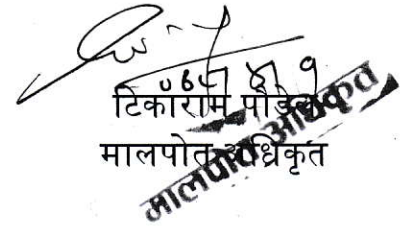 टिकाराम पौडेल
मालपोत अधिकृत
मालपोत अधिकृत